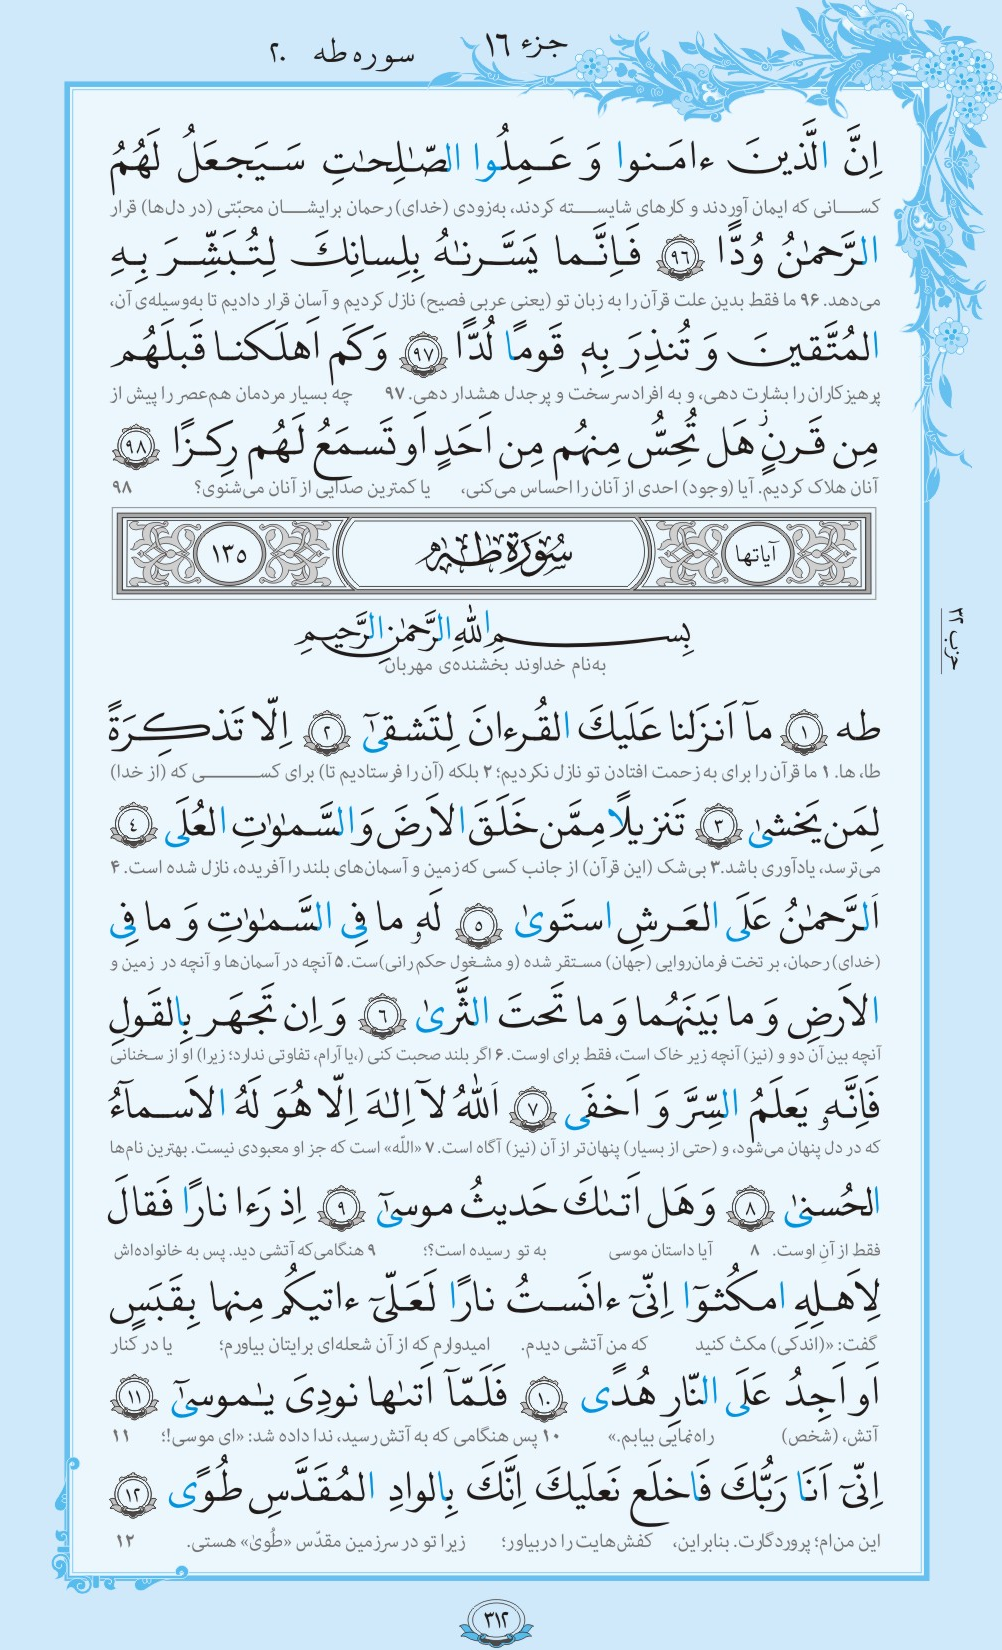 جزء ۱۶
سوره طه ۲۰
اِنَّ الَّذينَ ءامَنوا وَ عَمِلُوا الصّالِحٰتِ سَيَجعَلُ لَهُمُ
کسانی که ایمان آوردند و کارهای شایسته کردند، به‌زودی (خدای) رحمان برایشان محبّتی (در دل‌ها) قرار
الرَّحمٰنُ وُدًّا ﴿۹۶﴾ فَاِنَّما يَسَّرنٰهُ بِلِسانِكَ لِتُبَشِّرَ بِهِ
می‌دهد. ۹۶ ما فقط بدین علت قرآن را به زبان تو (یعنی عربی فصیح) نازل کردیم و آسان قرار دادیم تا به‌وسیله‌ی آن،
المُتَّقينَ وَ تُنذِرَ بِهٖ قَومًا لُدًّا ﴿۹۷﴾ وَ كَم اَهلَكنا قَبلَهُم
پرهیزکاران را بشارت دهی، و به افراد سرسخت و پرجدل هشدار دهی. ۹۷ چه بسیار مردمان هم‌عصر را پیش از
مِن قَرنٍ هَل تُحِسُّ مِنهُم مِن اَحَدٍ اَو تَسمَعُ لَهُم رِكزًا ﴿۹۸﴾
آنان هلاک کردیم. آیا (وجود) احدی از آنان را احساس می‌کنی، یا کمترین صدایی از آنان می‌شنوی؟ ۹۸
آياتها سُورَة طٰهٰ ١٣٥
حزب ۳۲
بِسمِ اللّٰهِ الرَّحمٰنِ الرَّحيمِ
به‌نام خداوند بخشنده‌ی مهربان
طه ﴿۱﴾ مآ اَنزَلنا عَلَيكَ القُرءانَ لِتَشقىٰٓ ﴿۲﴾ اِلّا تَذكِرَةً
طا، ها. ۱ ما قرآن را برای به زحمت افتادن تو نازل نکردیم؛ ۲ بلکه (آن را فرستادیم تا) برای کسی که (از خدا)
لِمَن يَخشىٰ ﴿۳﴾ تَنزيلًا مِمَّن خَلَقَ الاَرضَ وَ السَّمٰوٰتِ العُلَى ﴿۴﴾
می‌ترسد، یادآوری باشد. ۳ بی‌شک (این قرآن) از جانب کسی که زمین و آسمان‌های بلند را آفریده، نازل شده است. ۴
اَلرَّحمٰنُ عَلَى العَرشِ استَوىٰ ﴿۵﴾ لَهٗ ما فِى السَّمٰوٰتِ وَ ما فِى
(خدای) رحمان، بر تخت فرمان‌روایی (جهان) مستقر شده (و مشغول حکم‌رانی)ست. ۵ آنچه در آسمان‌ها و آنچه در زمین و
الاَرضِ وَ ما بَينَهُما وَ ما تَحتَ الثَّرىٰ ﴿۶﴾ وَ اِن تَجهَر بِالقَولِ
آنچه بین آن دو و (نیز) آنچه زیر خاک است، فقط برای اوست. ۶ اگر بلند صحبت کنی (،یا آرام، تفاوتی ندارد؛ زیرا) او از سخنانی
فَاِنَّهٗ يَعلَمُ السِّرَّ وَ اَخفَى ﴿۷﴾ اَللّٰهُ لآ اِلٰهَ اِلّا هُوَ لَهُ الاَسمآءُ
که در دل پنهان می‌شود، و (حتی از بسیار) پنهان‌تر از آن (نیز) آگاه است. ۷ «اللّه» است که جز او معبودی نیست. بهترین نام‌ها
الحُسنىٰ ﴿۸﴾ وَ هَل اَتىٰكَ حَديثُ موسىٰٓ ﴿۹﴾ اِذ رَءا نارًا فَقالَ
فقط از آنِ اوست. ۸ آیا داستان موسی به تو رسیده است؟؛ ۹ هنگامی‌که آتشی دید. پس به خانواده‌اش
لِاَهلِهِ امكُثوٓا اِنّىٓ ءانَستُ نارًا لَعَلّىٓ ءاتيكُم مِنها بِقَبَسٍ
گفت: «(اندکی) مکث کنید که من آتشی دیدم. امیدوارم که از آن شعله‌ای برایتان بیاورم؛ یا در کنار
اَو اَجِدُ عَلَى النّارِ هُدًى ﴿۱۰﴾ فَلَمّآ اَتىٰها نودِىَ يٰموسىٰٓ ﴿۱۱﴾
آتش، (شخص) راه‌نمایی بیابم.» ۱۰ پس هنگامی که به آتش رسید، ندا داده شد: «ای موسی!؛ ۱۱
اِنّىٓ اَنَا رَبُّكَ فَاخلَع نَعلَيكَ اِنَّكَ بِالوادِ المُقَدَّسِ طُوًى ﴿۱۲﴾
این من‌ام؛ پروردگارت. بنابراین، کفش‌هایت را دربیاور؛ زیرا تو در سرزمین مقدّس «طُویٰ» هستی. ۱۲
۳۱۲